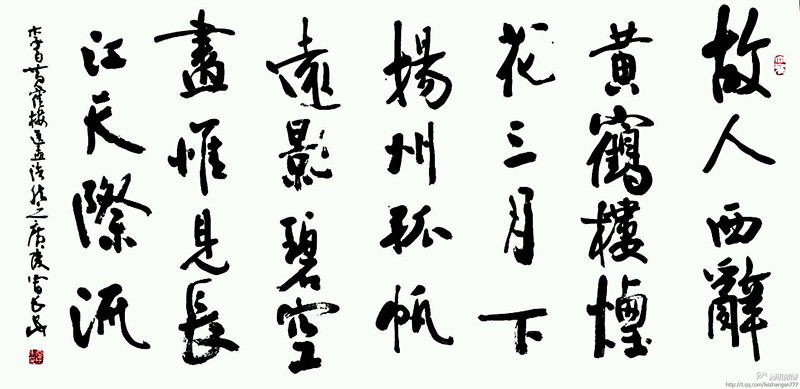 故人西辭
黄鶴樓煙
花三月下
揚州孤帆
遠影碧空
盡惟見長
江天際流
李白黄鶴樓送孟浩然之廣陵
腾讯微博
http://t.qq.com/leizhangan777